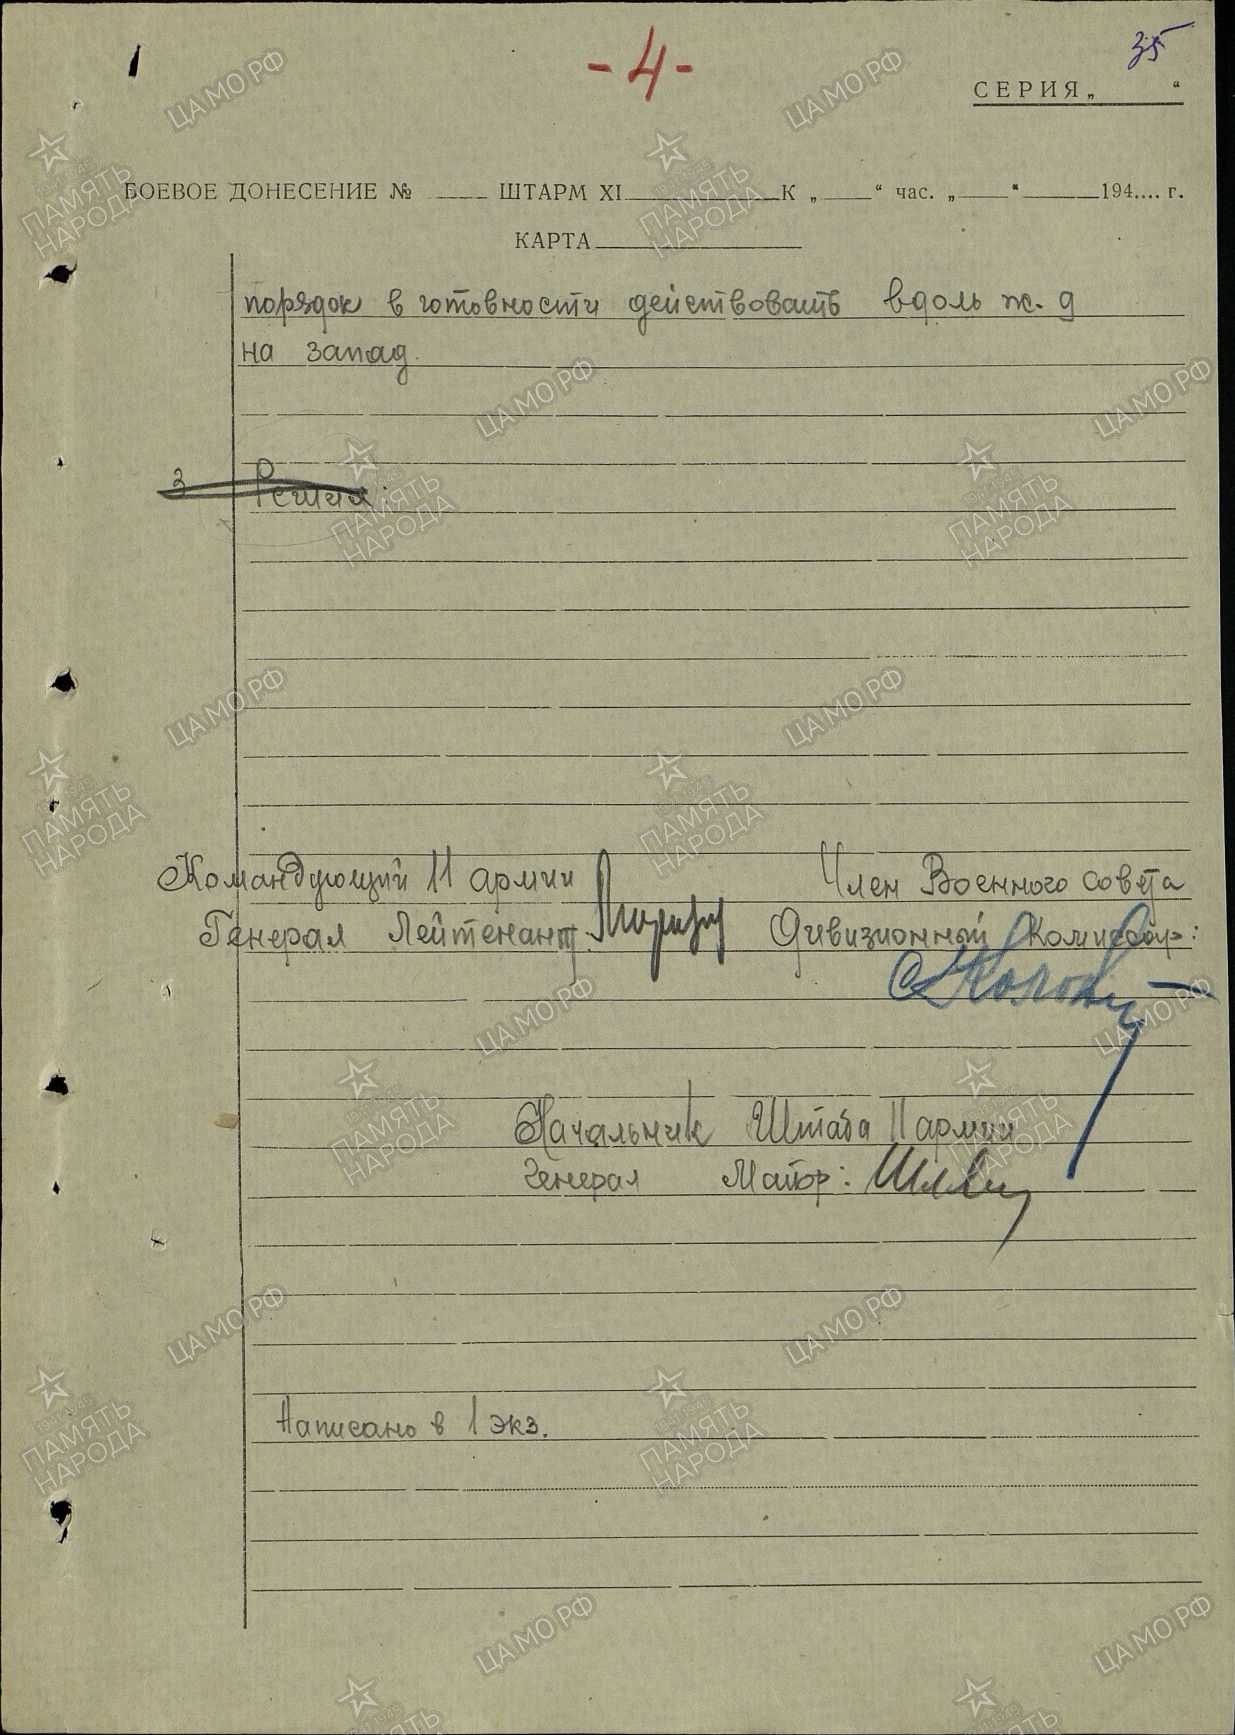 35
- 4 -
СЕРИЯ „ “
БОЕВОЕ ДОНЕСЕНИЕ № ____ ШТАРМ XI ____ К „____“ час. „____“ ____ 194.... г.
КАРТА ____
порядок в готовности действовать вдоль ж.д
на запад.
3 Решил:
Командующий 11 армии Член Военного совета
Генерал Лейтенант Дивизионный Комиссар:
Начальник Штаба 11 армии
Генерал Майор:
Написано в 1 экз.
ПАМЯТЬ НАРОДА
ЦАМО РФ